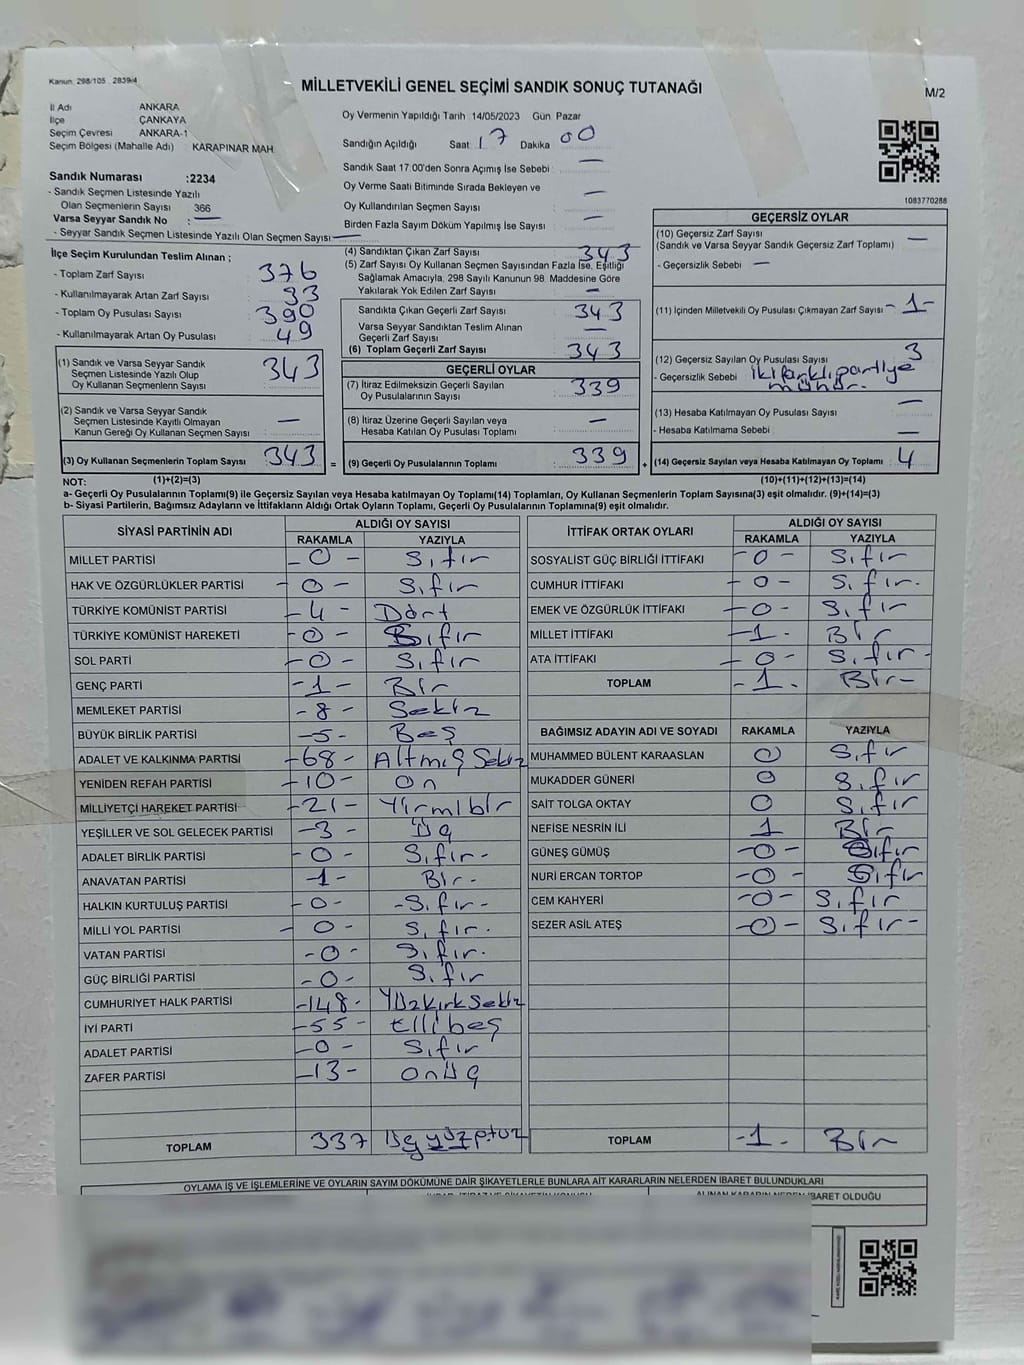 Kanun: 298/105 . 2839/4
MİLLETVEKİLİ GENEL SEÇİMİ SANDIK SONUÇ TUTANAĞI
M/2
İl Adı ANKARA
İlçe ÇANKAYA
Seçim Çevresi ANKARA-1
Seçim Bölgesi (Mahalle Adı) KARAPINAR MAH.
Oy Vermenin Yapıldığı Tarih 14/05/2023 Gün Pazar
Sandığın Açıldığı Saat 17 Dakika 00
Sandık Saat 17:00'den Sonra Açılmış İse Sebebi : —
Oy Verme Saati Bitiminde Sırada Bekleyen ve
Oy Kullandırılan Seçmen Sayısı : —
Birden Fazla Sayım Döküm Yapılmış İse Sayısı : —
1083770288
Sandık Numarası :2234
- Sandık Seçmen Listesinde Yazılı
Olan Seçmenlerin Sayısı 366
Varsa Seyyar Sandık No : —
- Seyyar Sandık Seçmen Listesinde Yazılı Olan Seçmen Sayısı: —
İlçe Seçim Kurulundan Teslim Alınan ;
- Toplam Zarf Sayısı 376
- Kullanılmayarak Artan Zarf Sayısı 33
- Toplam Oy Pusulası Sayısı 390
- Kullanılmayarak Artan Oy Pusulası 49
(1) Sandık ve Varsa Seyyar Sandık
Seçmen Listesinde Yazılı Olup
Oy Kullanan Seçmenlerin Sayısı 343
(2) Sandık ve Varsa Seyyar Sandık
Seçmen Listesinde Kayıtlı Olmayan
Kanun Gereği Oy Kullanan Seçmen Sayısı —
(3) Oy Kullanan Seçmenlerin Toplam Sayısı 343 =
(4) Sandıktan Çıkan Zarf Sayısı 343
(5) Zarf Sayısı Oy Kullanan Seçmen Sayısından Fazla İse, Eşitliği
Sağlamak Amacıyla, 298 Sayılı Kanunun 98. Maddesine Göre
Yakılarak Yok Edilen Zarf Sayısı —
Sandıkta Çıkan Geçerli Zarf Sayısı 343
Varsa Seyyar Sandıktan Teslim Alınan
Geçerli Zarf Sayısı —
(6) Toplam Geçerli Zarf Sayısı 343
GEÇERLİ OYLAR
(7) İtiraz Edilmeksizin Geçerli Sayılan
Oy Pusulalarının Sayısı 339
(8) İtiraz Üzerine Geçerli Sayılan veya
Hesaba Katılan Oy Pusulası Toplamı —
(9) Geçerli Oy Pusulalarının Toplamı 339 +
GEÇERSİZ OYLAR
(10) Geçersiz Zarf Sayısı
(Sandık ve Varsa Seyyar Sandık Geçersiz Zarf Toplamı) —
- Geçersizlik Sebebi —
(11) İçinden Milletvekili Oy Pusulası Çıkmayan Zarf Sayısı -1-
(12) Geçersiz Sayılan Oy Pusulası Sayısı 3
- Geçersizlik Sebebi iki farklı partiye
mühür.
(13) Hesaba Katılmayan Oy Pusulası Sayısı —
- Hesaba Katılmama Sebebi —
(14) Geçersiz Sayılan veya Hesaba Katılmayan Oy Toplamı 4
NOT: (1)+(2)=(3) (10)+(11)+(12)+(13)=(14)
a- Geçerli Oy Pusulalarının Toplamı(9) ile Geçersiz Sayılan veya Hesaba katılmayan Oy Toplamı(14) Toplamları, Oy Kullanan Seçmenlerin Toplam Sayısına(3) eşit olmalıdır. (9)+(14)=(3)
b- Siyasi Partilerin, Bağımsız Adayların ve İttifakların Aldığı Ortak Oyların Toplamı, Geçerli Oy Pusulalarının Toplamına(9) eşit olmalıdır.
SİYASİ PARTİNİN ADI ALDIĞI OY SAYISI
RAKAMLA YAZIYLA
MİLLET PARTİSİ -0- Sıfır
HAK VE ÖZGÜRLÜKLER PARTİSİ -0- Sıfır
TÜRKİYE KOMÜNİST PARTİSİ -4- Dört
TÜRKİYE KOMÜNİST HAREKETİ -0- Sıfır
SOL PARTİ -0- Sıfır
GENÇ PARTİ -1- Bir
MEMLEKET PARTİSİ -8- Sekiz
BÜYÜK BİRLİK PARTİSİ -5- Beş
ADALET VE KALKINMA PARTİSİ -68- Altmış Sekiz
YENİDEN REFAH PARTİSİ -10- On
MİLLİYETÇİ HAREKET PARTİSİ -21- Yirmibir
YEŞİLLER VE SOL GELECEK PARTİSİ -3- Üç
ADALET BİRLİK PARTİSİ -0- Sıfır-
ANAVATAN PARTİSİ -1- Bir-
HALKIN KURTULUŞ PARTİSİ -0- -Sıfır-
MİLLİ YOL PARTİSİ -0- Sıfır.
VATAN PARTİSİ -0- Sıfır.
GÜÇ BİRLİĞİ PARTİSİ -0- Sıfır
CUMHURİYET HALK PARTİSİ -148- Yüzkırk Sekiz
İYİ PARTİ -55- Ellibeş
ADALET PARTİSİ -0- Sıfır
ZAFER PARTİSİ -13- Onüç
TOPLAM 337 Üçyüz
İTTİFAK ORTAK OYLARI ALDIĞI OY SAYISI
RAKAMLA YAZIYLA
SOSYALİST GÜÇ BİRLİĞİ İTTİFAKI -0- Sıfır
CUMHUR İTTİFAKI -0- Sıfır.
EMEK VE ÖZGÜRLÜK İTTİFAKI -0- Sıfır
MİLLET İTTİFAKI -1- Bir
ATA İTTİFAKI -0- Sıfır-
TOPLAM -1- Bir-
BAĞIMSIZ ADAYIN ADI VE SOYADI RAKAMLA YAZIYLA
MUHAMMED BÜLENT KARAASLAN 0 Sıfır
MUKADDER GÜNERİ 0 Sıfır
SAİT TOLGA OKTAY 0 Sıfır
NEFİSE NESRİN İLİ 1 Bir
GÜNEŞ GÜMÜŞ -0- Sıfır
NURİ ERCAN TORTOP -0- Sıfır
CEM KAHYERİ -0- Sıfır
SEZER ASİL ATEŞ -0- Sıfır-
TOPLAM -1- Bir
OYLAMA İŞ VE İŞLEMLERİNE VE OYLARIN SAYIM DÖKÜMÜNE DAİR ŞİKAYETLERLE BUNLARA AİT KARARLARIN NELERDEN İBARET BULUNDUKLARI
ALINAN KARARIN NEDEN İBARET OLDUĞU